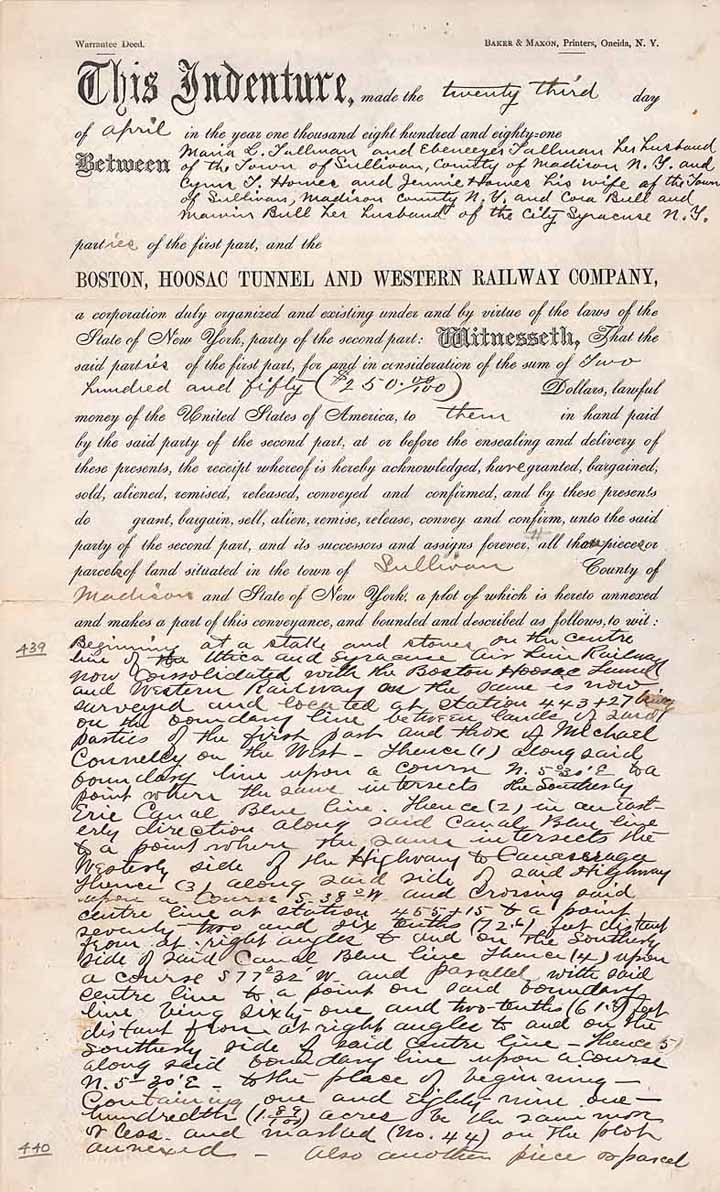 Warrantee Deed. BAKER & MAXON, Printers, Oneida, N. Y.
This Indenture, made the twenty third day
of april in the year one thousand eight hundred and eighty-one
Between Maria L. Tallman and Ebeneezer Tallman her husband
of the Town of Sullivan, County of Madison N.Y. and
Cyrus T. Howes and Jennie Howes his wife of the Town
of Sullivan, Madison County N.Y. and Cora Bull and
Marvin Bull her husband of the City Syracuse N.Y.
parties of the first part, and the
BOSTON, HOOSAC TUNNEL AND WESTERN RAILWAY COMPANY,
a corporation duly organized and existing under and by virtue of the laws of the
State of New York, party of the second part: Witnesseth, That the
said parties of the first part, for and in consideration of the sum of Two
hundred and fifty ($250.00/100) Dollars, lawful
money of the United States of America, to them in hand paid
by the said party of the second part, at or before the ensealing and delivery of
these presents, the receipt whereof is hereby acknowledged, have granted, bargained,
sold, aliened, remised, released, conveyed and confirmed, and by these presents
do grant, bargain, sell, alien, remise, release, convey and confirm, unto the said
party of the second part, and its successors and assigns forever, all those pieces or
parcels of land situated in the town of Sullivan County of
Madison and State of New York, a plot of which is hereto annexed
and makes a part of this conveyance, and bounded and described as follows, to wit:
439 Beginning at a stake and stones on the centre
line of the Utica and Syracuse Air Line Railway
now Consolidated with the Boston Hoosac Tunnel
and Western Railway as the same is now
surveyed and located at Station 443+27 being
on the boundary line between lands of said
parties of the first part and those of Michael
Connelly on the West - Thence (1) along said
boundary line upon a course N. 5°30' E to a
point where the same intersects the Southerly
Erie Canal Blue line. Thence (2) in an East-
erly direction along said Canal Blue line
to a point where the same intersects the
Westerly side of the Highway to Canaseraga
Thence (3) along said side of said Highway
upon a Course S. 38° W and Crossing said
centre line at station 455+15 to a point
seventy two and six tenths (72.6) feet distant
from at right angles to and on the Southerly
side of said Canal Blue line Thence (4) upon
a course S 77°32' W. and parallel with said
centre line to a point on said boundary
line being sixty-one and two-tenths (61.2) feet
distant from at right angles to and on the
Southerly side of said centre line - Thence 5)
along said boundary line upon a course
N. 5-30' E - to the place of beginning -
Containing one and Eighty nine one-
hundredths (1.89/100) acres be the same more
or less. and marked (No. 44) on the plot
440 annexed - Also another piece or parcel